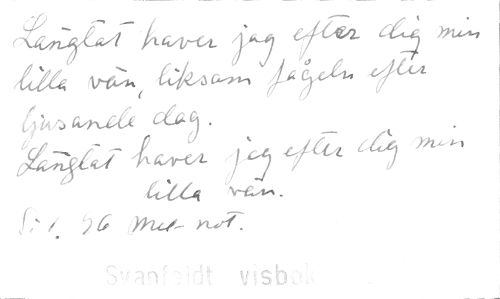 Längtat haver jag efter dig min
lilla vän, liksom fågeln efter
ljusande dag.
Längtat haver jag efter dig min
lilla vän.
Sid. 96 Mel-not.
Svanfeldt visbok